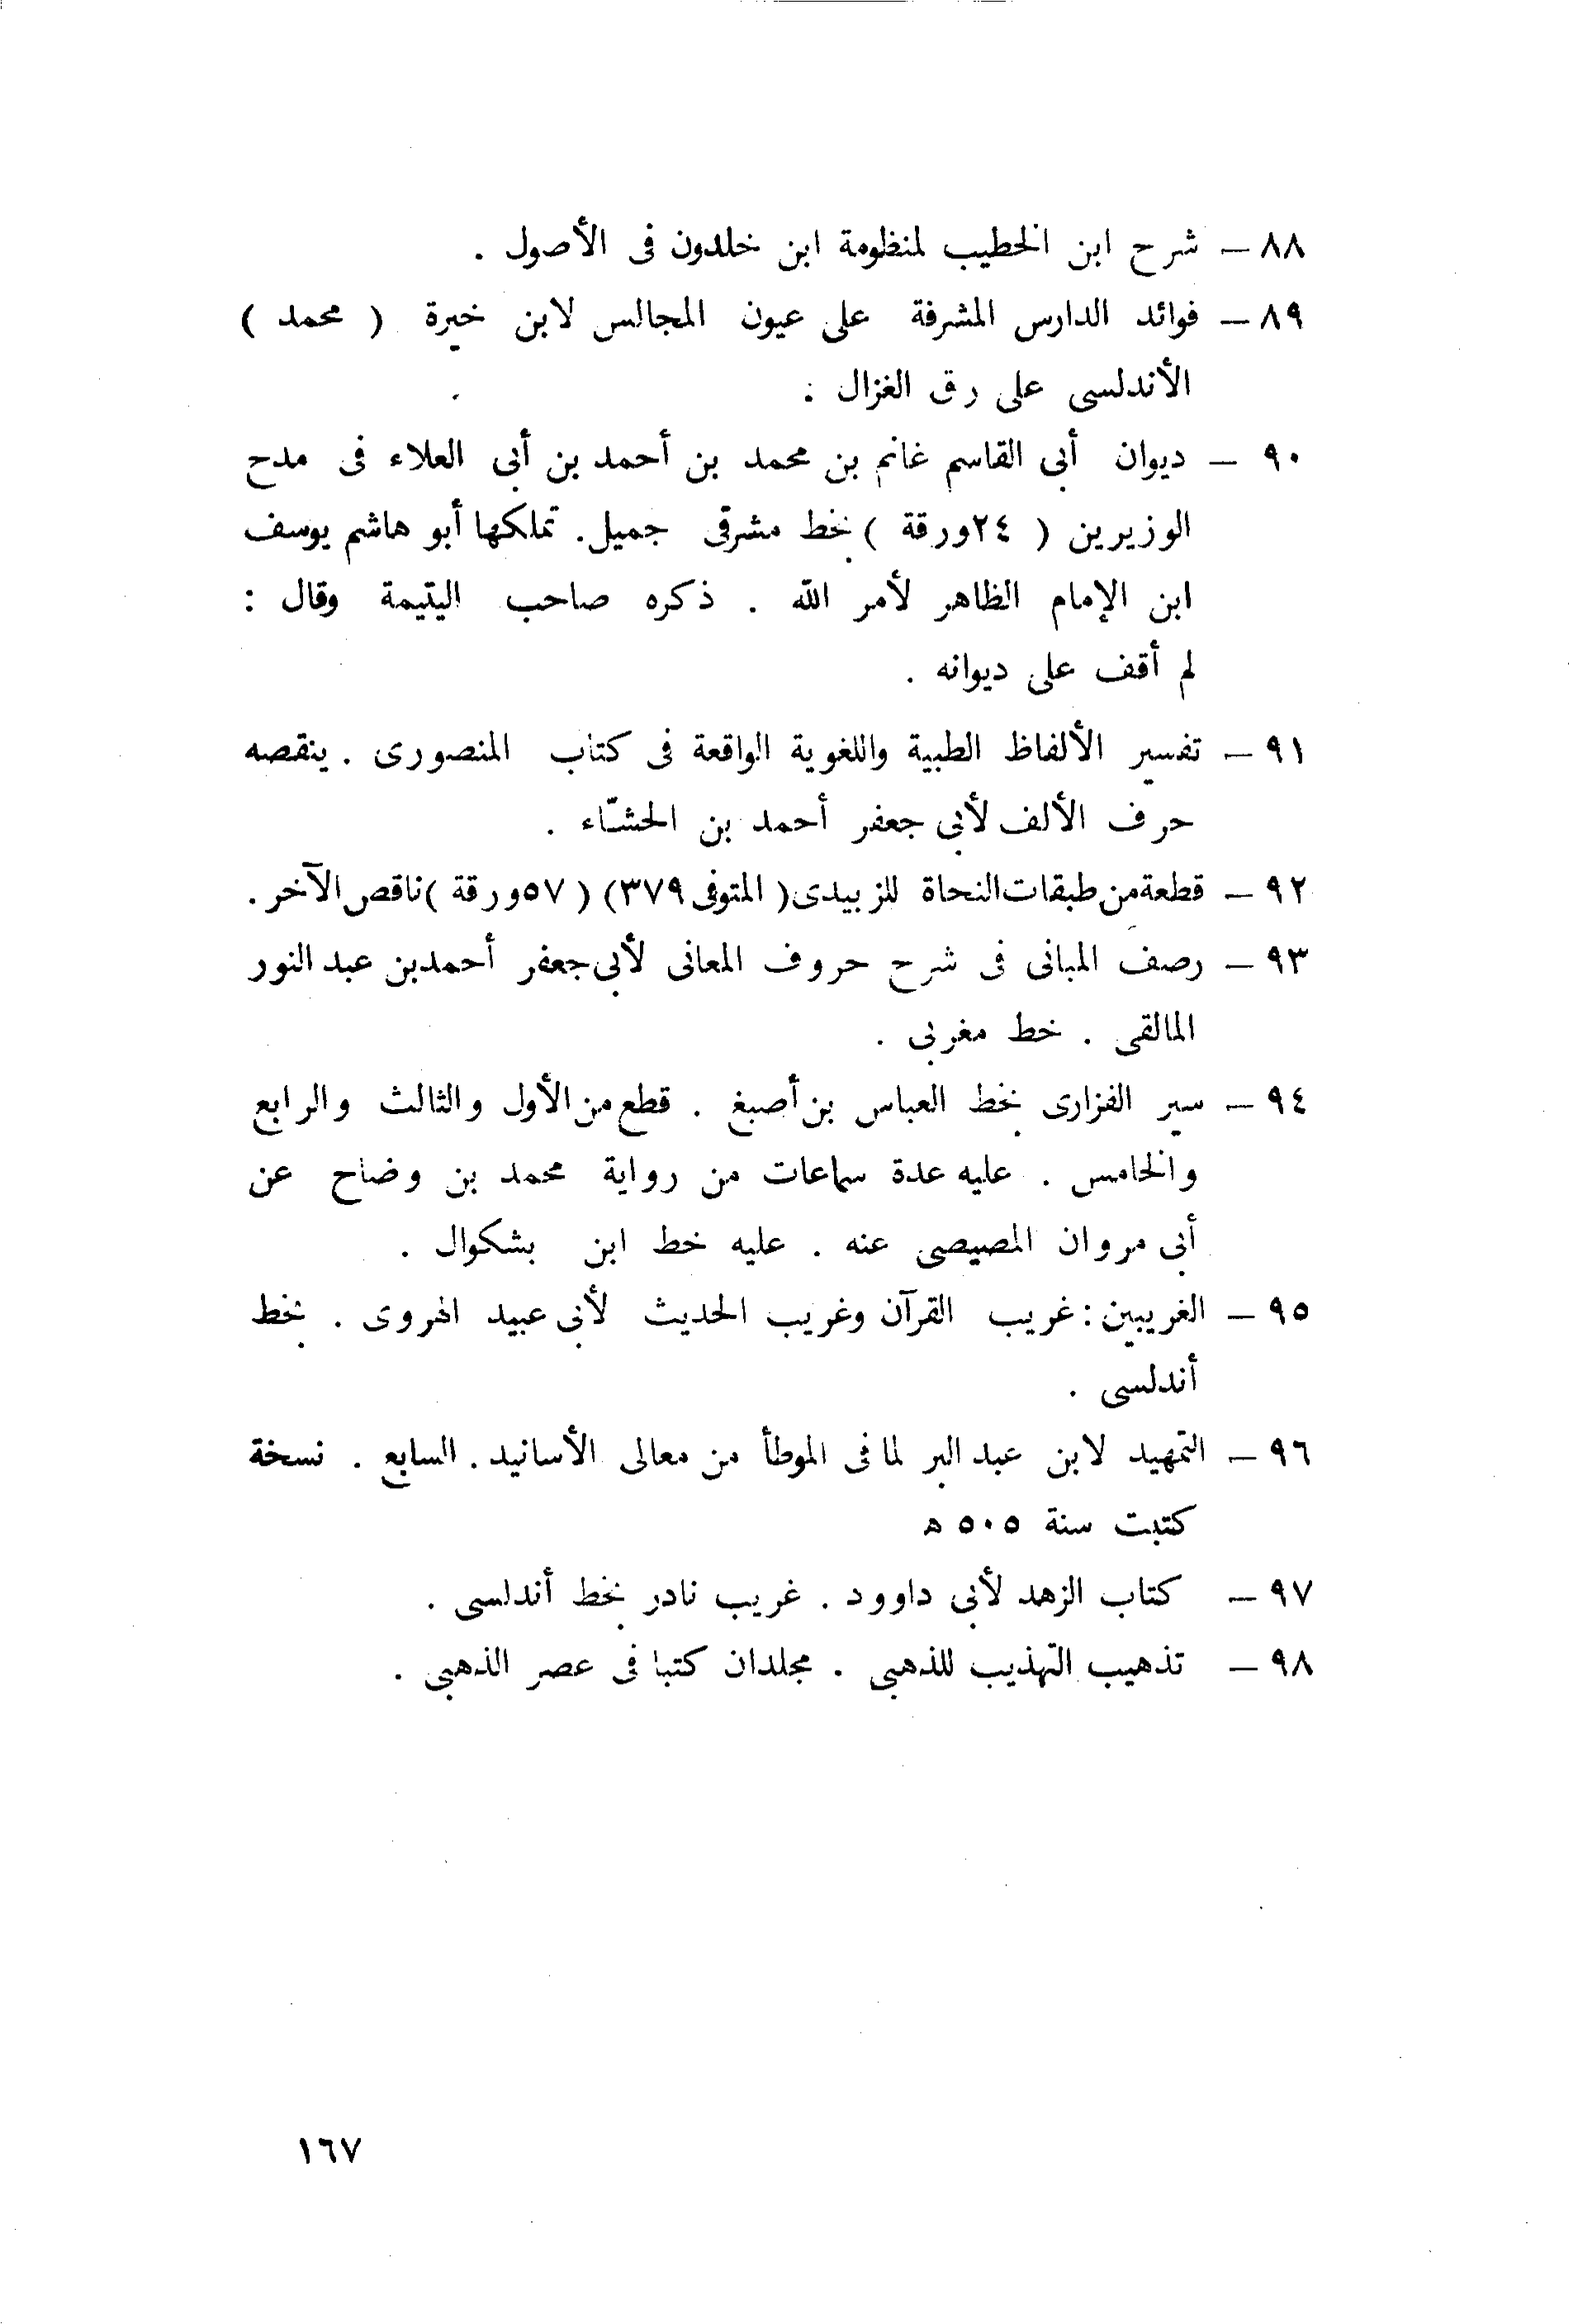 ٨٨ — شرح ابن الخطيب لمنظومة ابن خلدون فى الأصول .
٨٩ — فوائد الدارس المشرفة على عيون المجالس لابن خيرة ( محمد )
الأندلسى على رق الغزال .
٩٠ — ديوان أبى القاسم غانم بن محمد بن أحمد بن أبى العلاء فى مدح
الوزيرين ( ٢٤ ورقة ) بخط مشرقى جميل . تملكها أبو هاشم يوسف
ابن الإمام الظاهر لأمر الله . ذكره صاحب اليتيمة وقال :
لم أقف على ديوانه .
٩١ — تفسير الألفاظ الطبية واللغوية الواقعة فى كتاب المنصورى . ينقصه
حرف الألف لأبى جعفر أحمد بن الحشّاء .
٩٢ — قطعة من طبقات النحاة للزبيدى ( المتوفى ٣٧٩ ) ( ٥٧ ورقة ) ناقص الآخر .
٩٣ — رصف المبانى فى شرح حروف المعانى لأبى جعفر أحمد بن عبد النور
المالقى . خط مغربى .
٩٤ — سير الفزارى بخط العباس بن أصبغ . قطع من الأول والثالث والرابع
والخامس . عليه عدة سماعات من رواية محمد بن وضاح عن
أبى مروان المصيصى عنه . عليه خط ابن بشكوال .
٩٥ — الغريبين : غريب القرآن وغريب الحديث لأبى عبيد الهروى . بخط
أندلسى .
٩٦ — التمهيد لابن عبد البر لما فى الموطأ من معالى الأسانيد . السابع . نسخة
كتبت سنة ٥٠٥ ه
٩٧ — كتاب الزهد لأبى داوود . غريب نادر بخط أندلسى .
٩٨ — تذهيب التهذيب للذهبى . مجلدان كتبا فى عصر الذهبى .
١٦٧